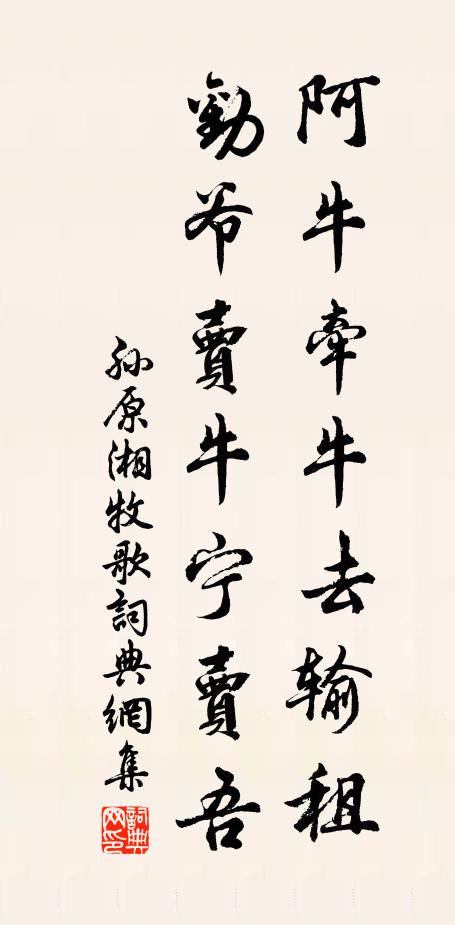 阿牛牽牛去输租
勸爷賣牛宁賣吾
孫原湘牧歌詞典網集
詞典网印